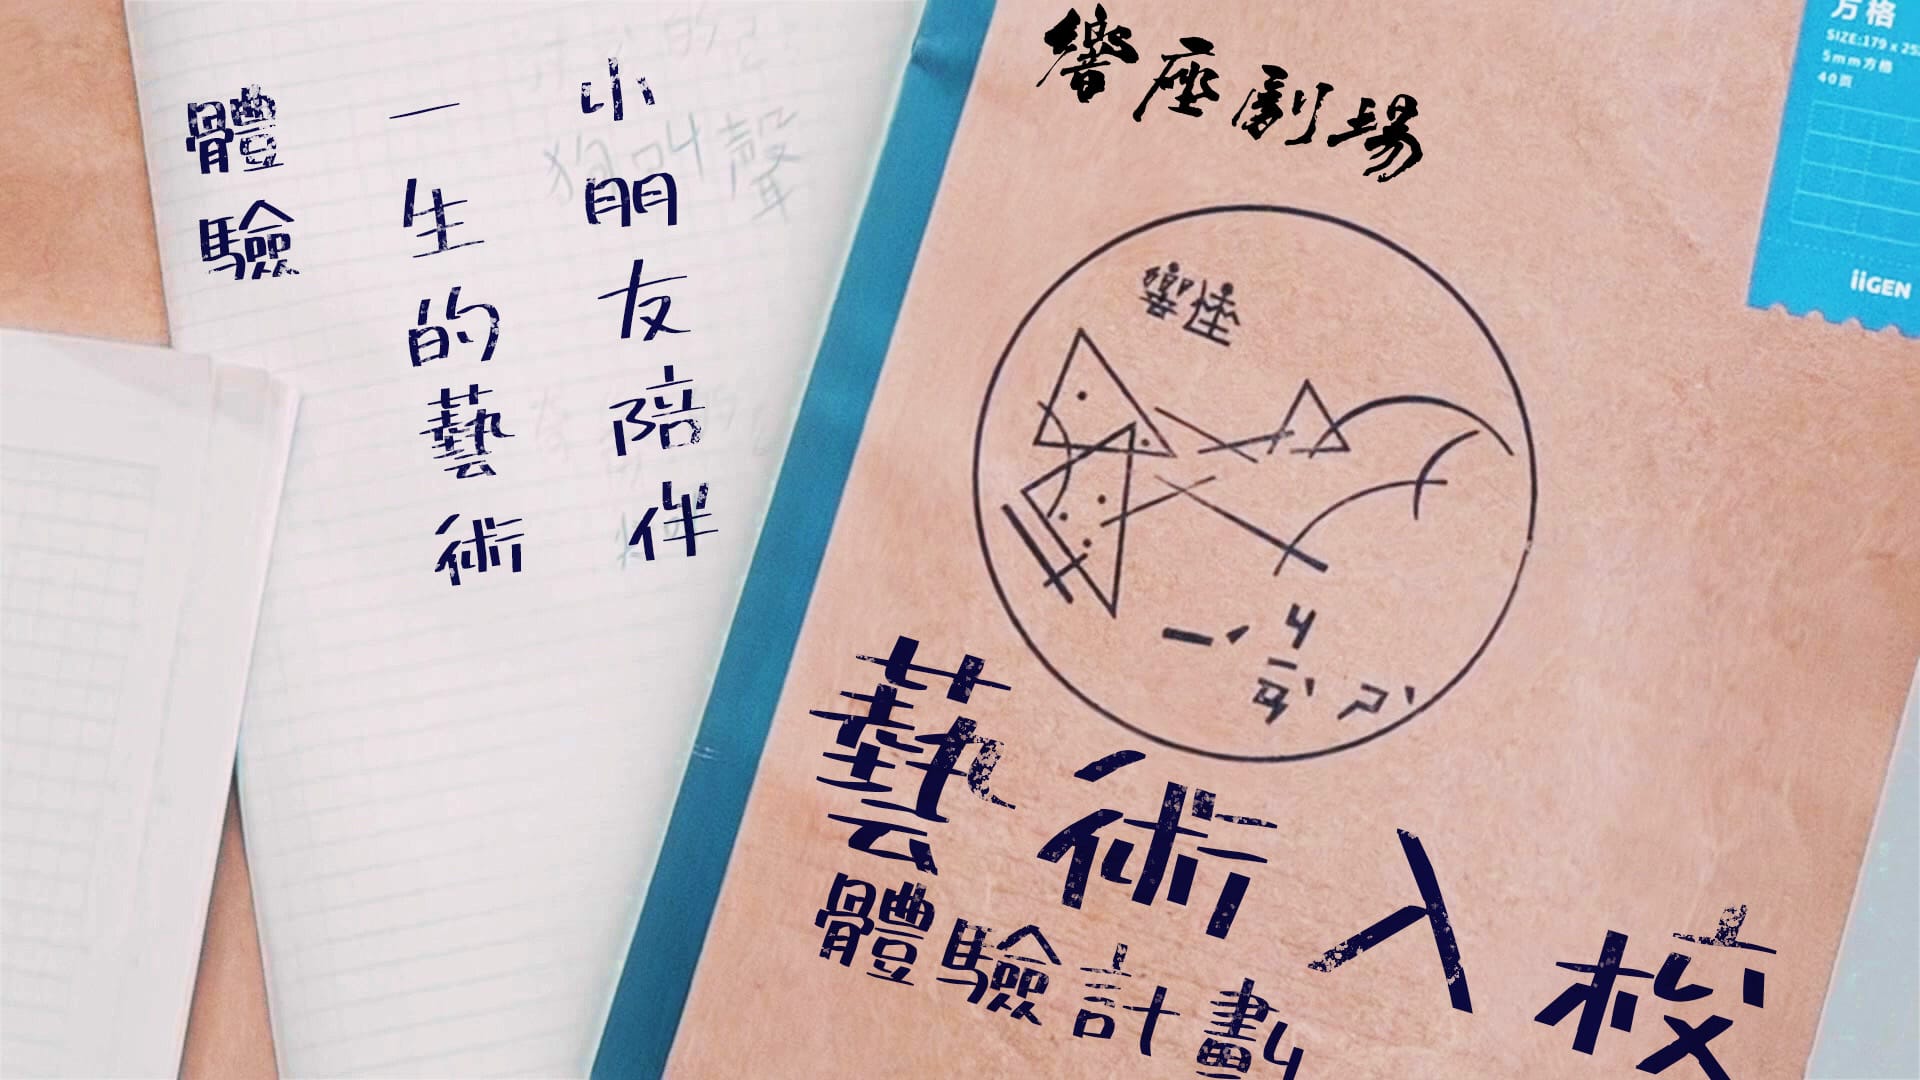 小朋友陪伴
一生的藝術
體驗
狗叫聲
響座劇場
方格
SIZE:179 x 25
5mm方格
40页
iiGEN
藝術入校
體驗計劃